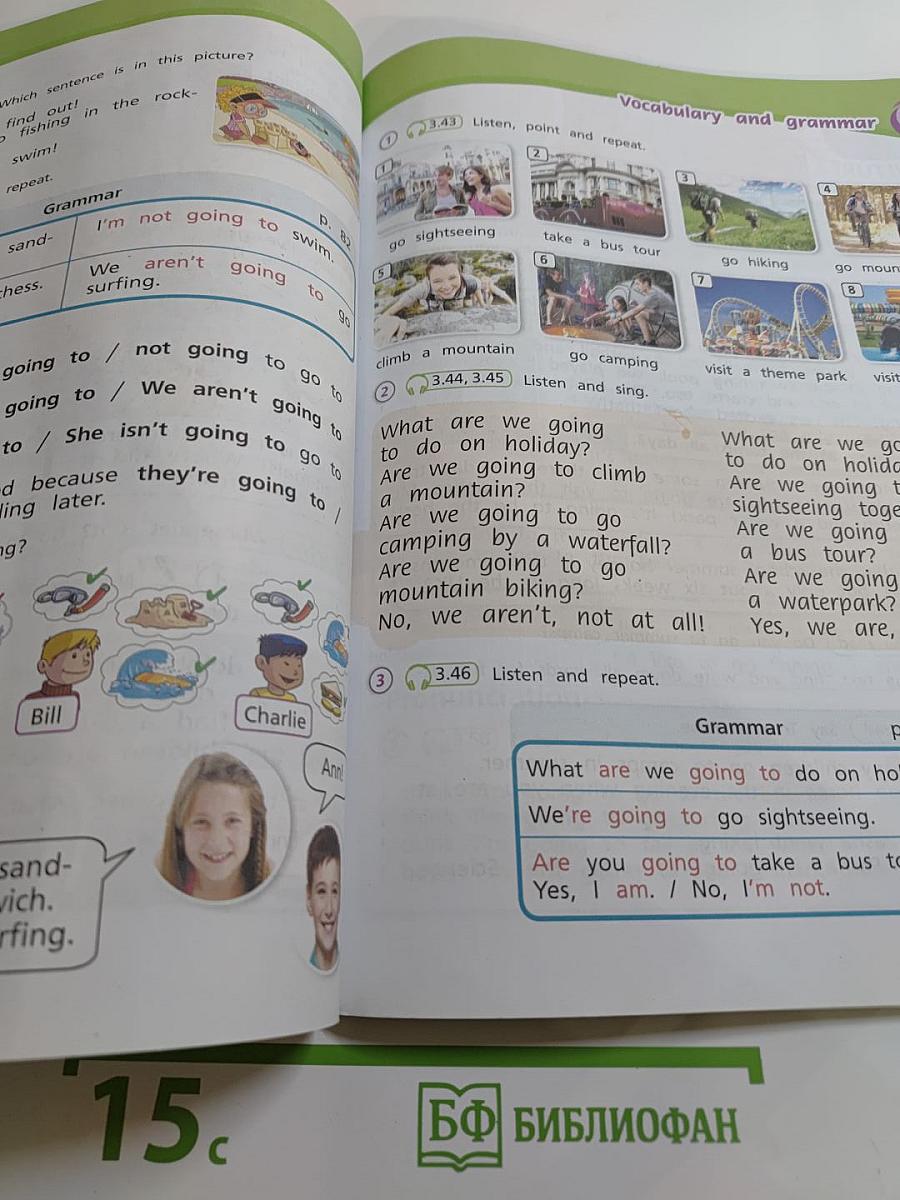 Which sentence is in this picture?
find out!
fishing in the rock-
swim!
repeat.
Grammar
p. 82
sand-
I'm not going to swim.
chess.
We aren't going to go
surfing.
going to / not going to go to
going to / We aren't going to
to / She isn't going to go to
because they're going to /
later.
Bill
Charlie
Ann!
sand-
Vocabulary and grammar
1 3.43 Listen, point and repeat.
1
2
3
4
go sightseeing
take a bus tour
go hiking
go
5
6
7
8
climb a mountain
go camping
visit a theme park
visit
2 3.44, 3.45 Listen and sing.
What are we going
to do on holiday?
Are we going to climb
a mountain?
Are we going to go
camping by a waterfall?
Are we going to go
mountain biking?
No, we aren't, not at all!
What are we
to do on
Are we going
sightseeing
Are we going
a bus tour?
Are we going
a waterpark?
Yes, we are,
3 3.46 Listen and repeat.
Grammar
What are we going to do on
We're going to go sightseeing.
Are you going to take a bus
Yes, I am. / No, I'm not.
15 с
БФ БИБЛИОФАН